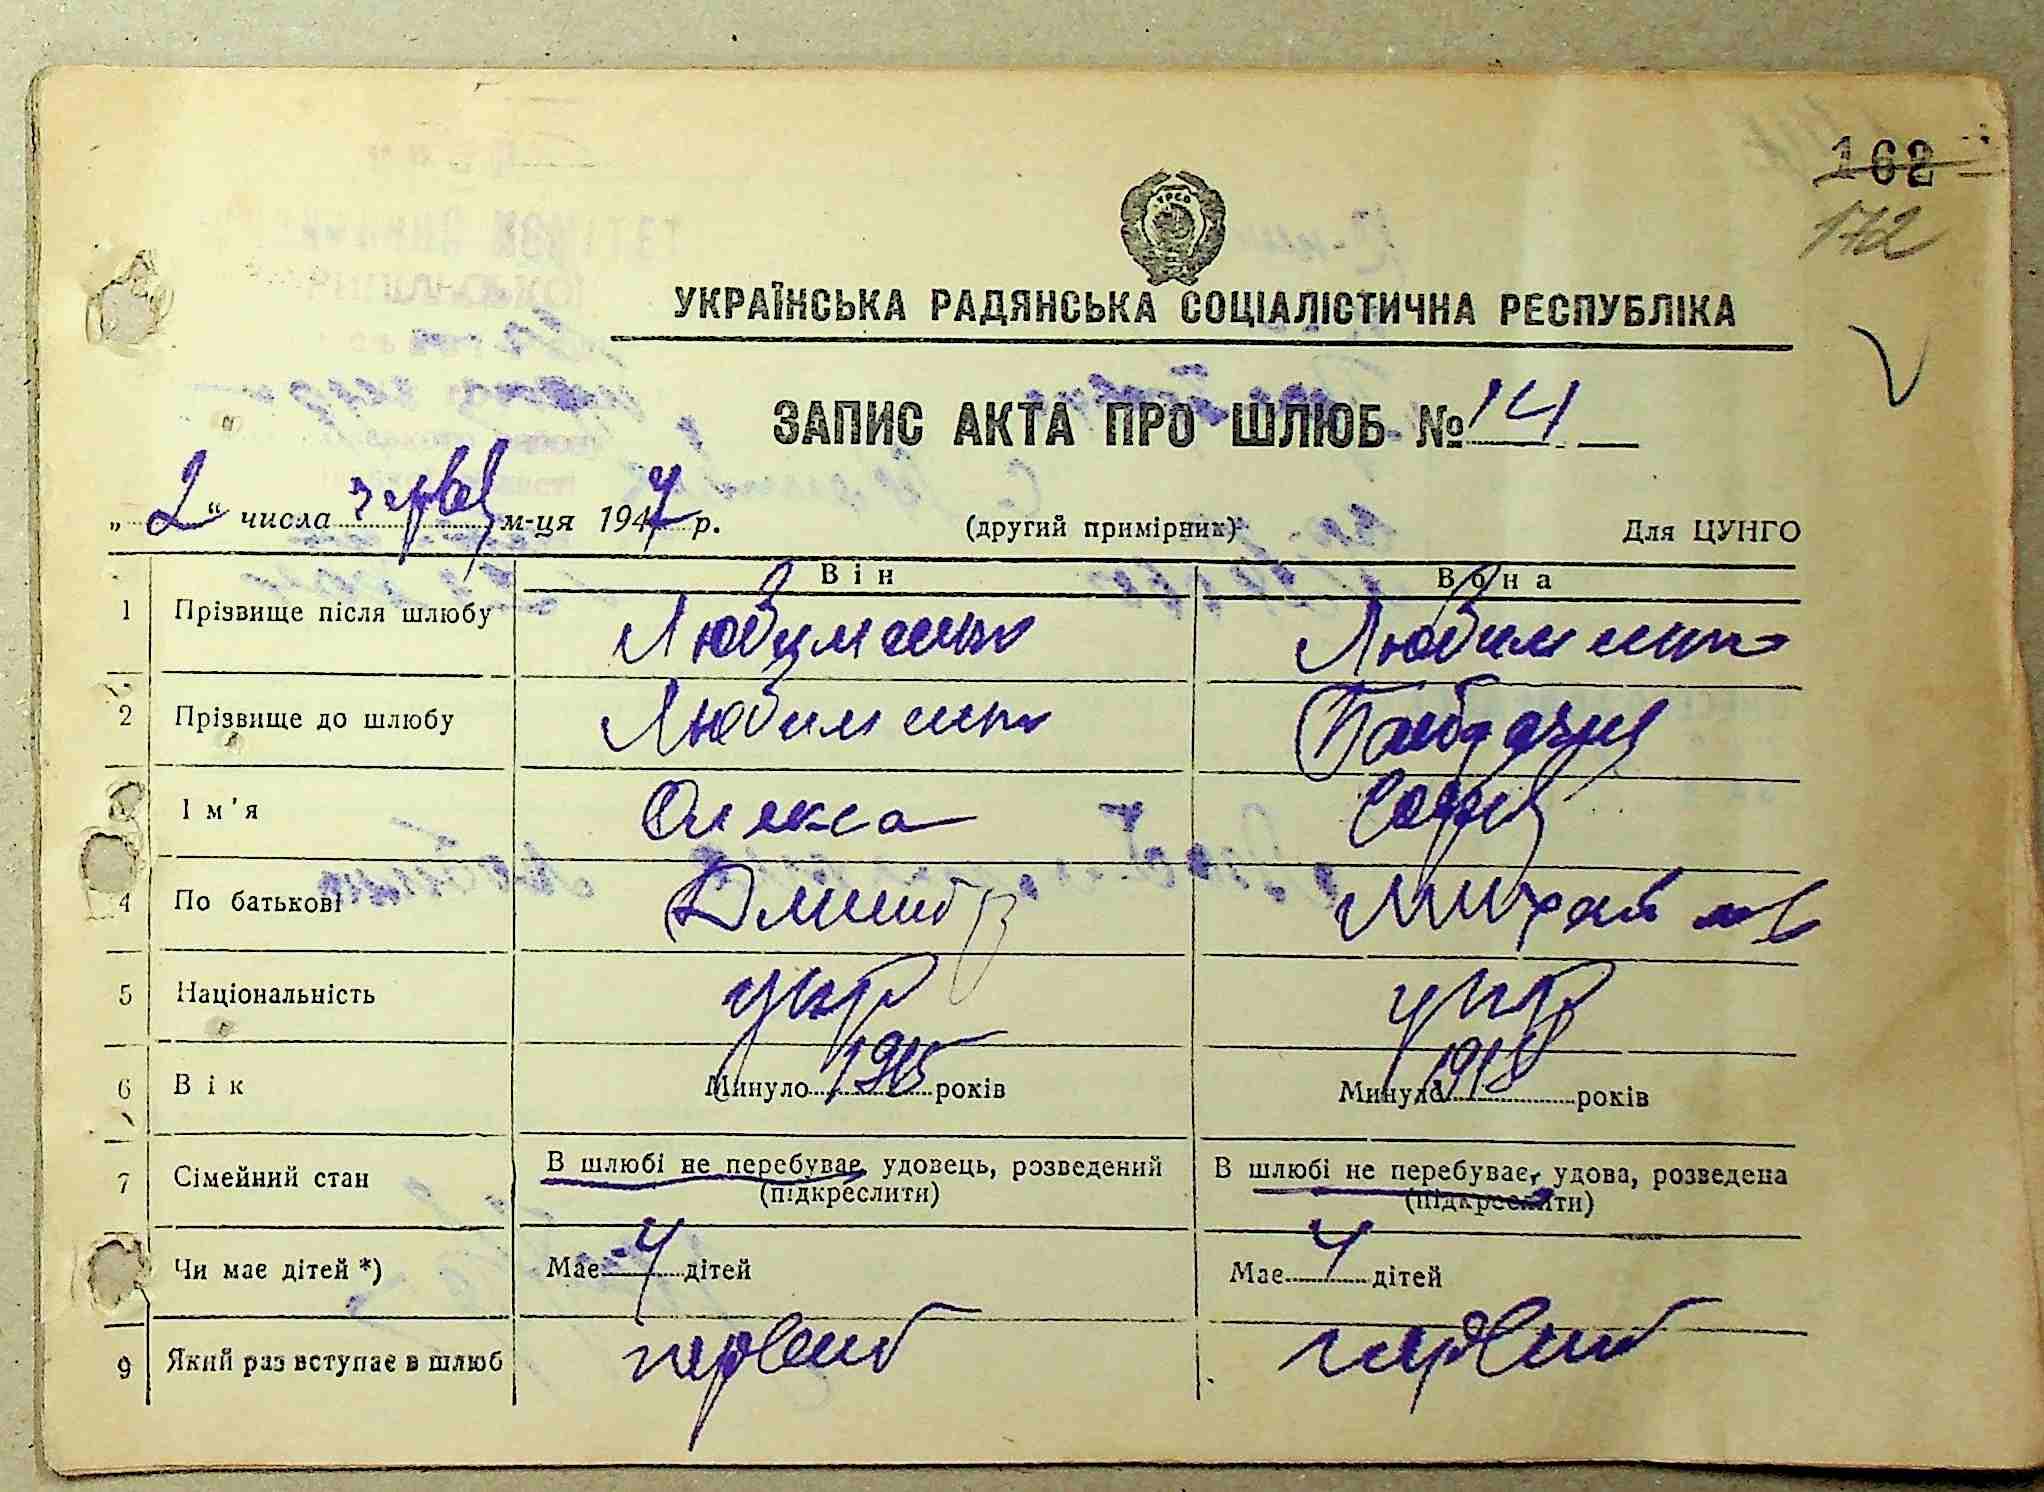 162
172
УРСР
УКРАЇНСЬКА РАДЯНСЬКА СОЦІАЛІСТИЧНА РЕСПУБЛІКА
ЗАПИС АКТА ПРО ШЛЮБ № 14
„2“ числа червня м-ця 1947 р. (другий примірник) Для ЦУНГО
Він Вона
1 Прізвище після шлюбу Любименко Любименко
2 Прізвище до шлюбу Любименко
3 Ім'я Олекса Софія
4 По батькові Дмитр Михайлов
5 Національність укр укр
6 Вік Минуло 1915 років Минуло 1918 років
7 Сімейний стан В шлюбі не перебуває, удовець, розведений (підкреслити) В шлюбі не перебуває, удова, розведена (підкреслити)
Чи має дітей *) Має 4 дітей Має 4 дітей
9 Який раз вступає в шлюб первий первий